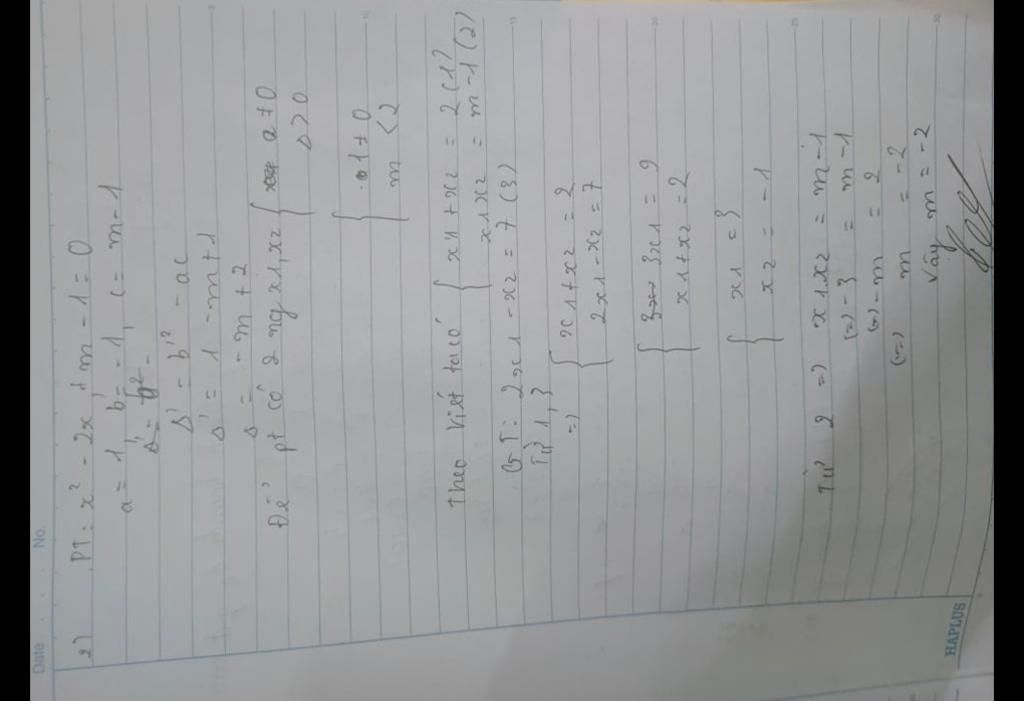 Date No.
2) PT: x² - 2x + m - 1 = 0
a = 1, b' = -1, c = m - 1
Δ' = b'² - ac
Δ' = 1 - m + 1
Δ = - m + 2
Để pt có 2 ng x1, x2 { a ≠ 0
Δ > 0
{ 1 ≠ 0
m < 2
Theo Viét ta có { x1 + x2 = 2 (1)
x1x2 = m - 1 (2)
GT: 2x1 - x2 = 7 (3)
Từ 1, 3
=> { x1 + x2 = 2
2x1 - x2 = 7
{ 3x1 = 9
x1 + x2 = 2
{ x1 = 3
x2 = -1
Từ 2 => x1.x2 = m - 1
(=) -3 = m - 1
(=) -m = 2
(=) m = -2
Vậy m = -2
HAPLUS